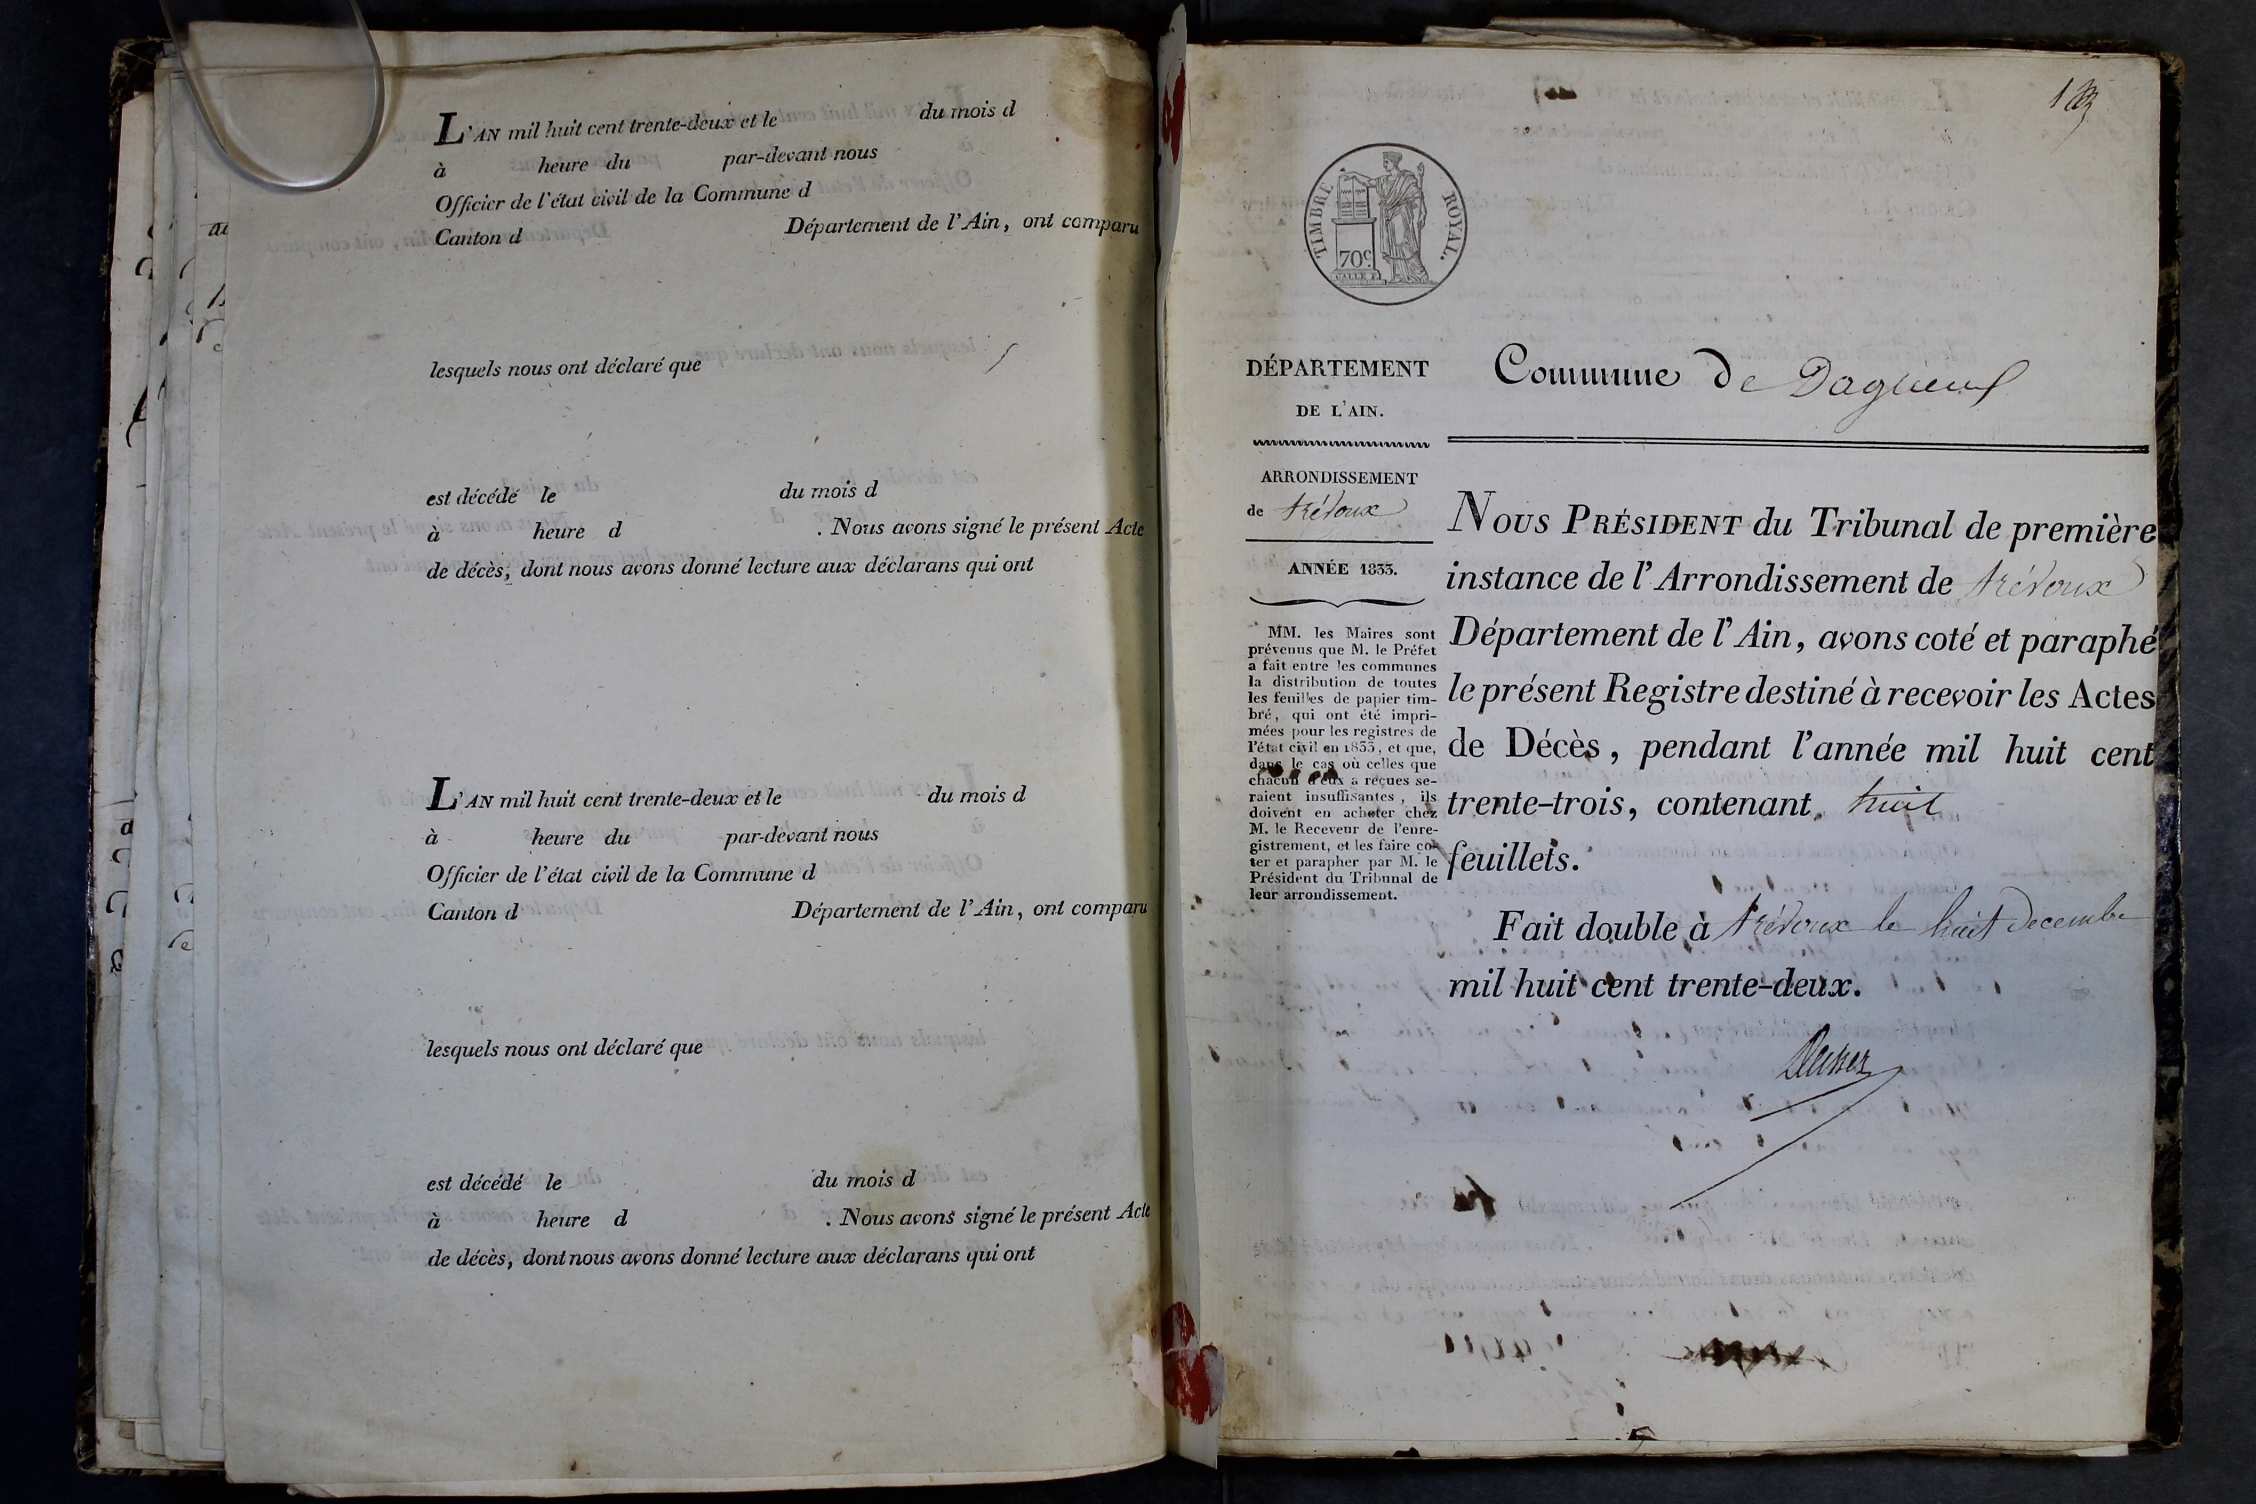 L'AN mil huit cent trente-deux et le du mois d
à heure du par-devant nous
Officier de l'état civil de la Commune d
Canton d Département de l'Ain, ont comparu
lesquels nous ont déclaré que
est décédé le du mois d
à heure d . Nous avons signé le présent Acte
de décès, dont nous avons donné lecture aux déclarans qui ont
L'AN mil huit cent trente-deux et le du mois d
à heure du par-devant nous
Officier de l'état civil de la Commune d
Canton d Département de l'Ain, ont comparu
lesquels nous ont déclaré que
est décédé le du mois d
à heure d . Nous avons signé le présent Acte
de décès, dont nous avons donné lecture aux déclarans qui ont
TIMBRE ROYAL.
70c.
DÉPARTEMENT
DE L'AIN.
ARRONDISSEMENT
de trévoux
ANNÉE 1833.
MM. les Maires sont
prévenus que M. le Préfet
a fait entre les communes
la distribution de toutes
les feuilles de papier tim-
bré, qui ont été impri-
mées pour les registres de
l'état civil en 1833, et que,
dans le cas où celles que
chacun d'eux a reçues se-
raient insuffisantes, ils
doivent en acheter chez
M. le Receveur de l'enre-
gistrement, et les faire co-
ter et parapher par M. le
Président du Tribunal de
leur arrondissement.
Commune de Dagneux
NOUS PRÉSIDENT du Tribunal de première
instance de l'Arrondissement de trévoux
Département de l'Ain, avons coté et paraphé
le présent Registre destiné à recevoir les Actes
de Décès, pendant l'année mil huit cent
trente-trois, contenant huit
feuillets.
Fait double à trévoux le huit decembre
mil huit cent trente-deux.